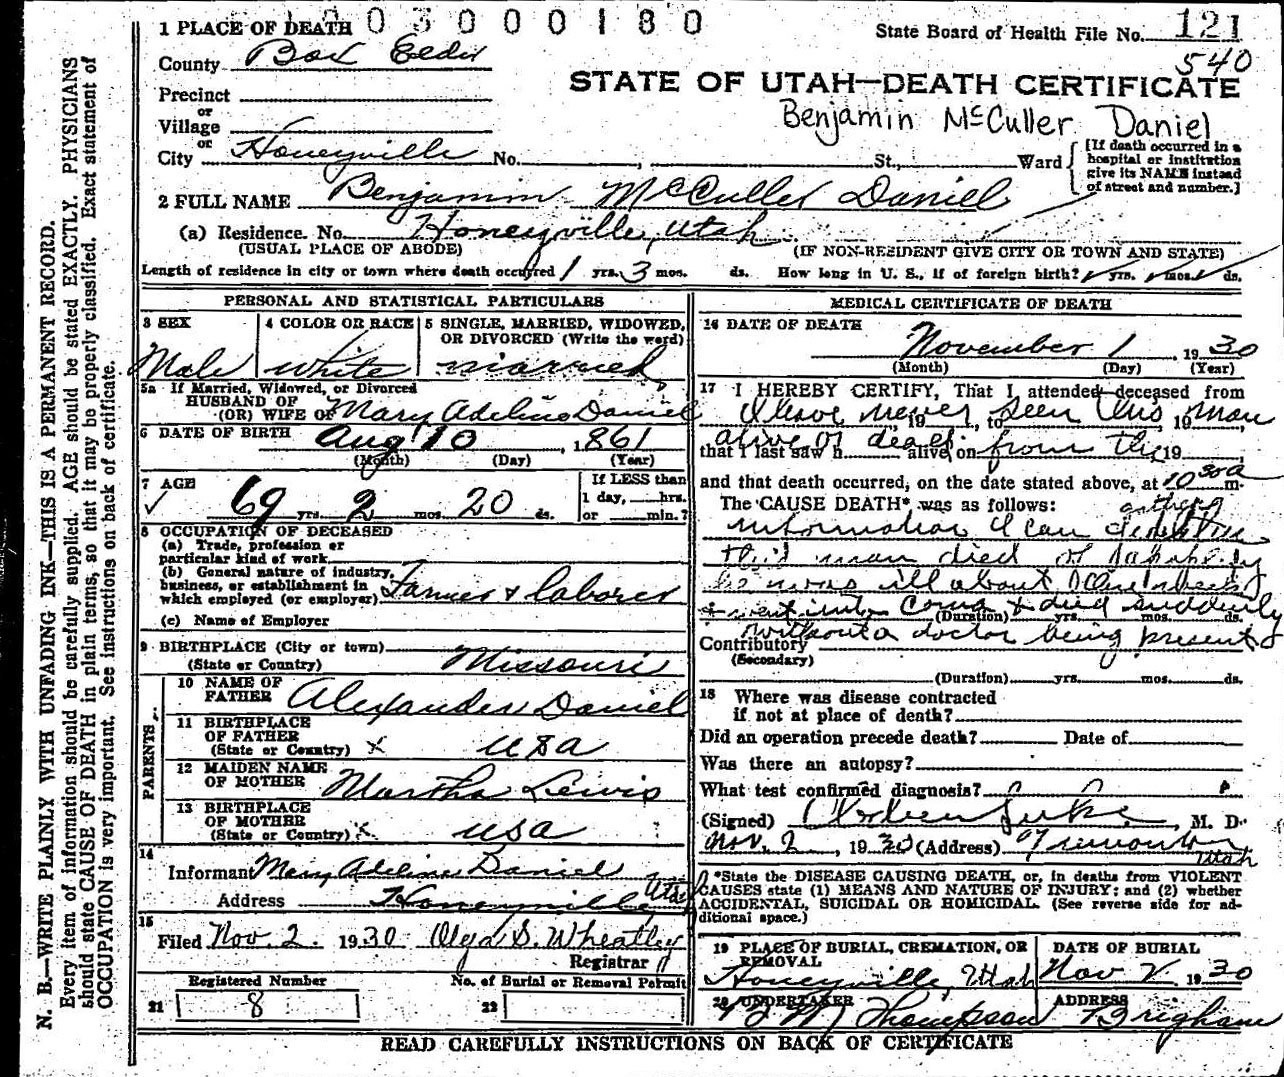 1 PLACE OF DEATH 0 3 0 0 0 1 8 0
State Board of Health File No. 121
540
County Box Elder
STATE OF UTAH—DEATH CERTIFICATE
Precinct
or
Village
Benjamin McCuller Daniel
or
City Honeyville No. St., Ward
[If death occurred in a hospital or institution give its NAME instead of street and number.]
2 FULL NAME Benjamin McCuller Daniel
(a) Residence. No. Honeyville, Utah
(USUAL PLACE OF ABODE) (IF NON-RESIDENT GIVE CITY OR TOWN AND STATE)
Length of residence in city or town where death occurred 1 yrs. 3 mos. ds. How long in U. S., if of foreign birth? yrs. mos. ds.
PERSONAL AND STATISTICAL PARTICULARS
3 SEX
Male
4 COLOR OR RACE
white
5 SINGLE, MARRIED, WIDOWED, OR DIVORCED (Write the word)
married
5a If Married, Widowed, or Divorced
HUSBAND OF
(OR) WIFE OF Mary Adeline Daniel
6 DATE OF BIRTH Aug 10, 1861
(Month) (Day) (Year)
7 AGE
69 yrs. 2 mos. 20 ds.
If LESS than
1 day, hrs.
or min.?
8 OCCUPATION OF DECEASED
(a) Trade, profession or
particular kind of work
(b) General nature of industry,
business, or establishment in
which employed (or employer) Farmer & laborer
(c) Name of Employer
9 BIRTHPLACE (City or town)
(State or Country) Missouri
PARENTS
10 NAME OF
FATHER Alexander Daniel
11 BIRTHPLACE
OF FATHER
(State or Country) x USA
12 MAIDEN NAME
OF MOTHER Martha Lewis
13 BIRTHPLACE
OF MOTHER
(State or Country) x USA
14
Informant Mary Adeline Daniel
Address Honeyville Utah
15
Filed Nov. 2. 1930 Olga S. Wheatley
Registrar
Registered Number No. of Burial or Removal Permit
21 8 22
MEDICAL CERTIFICATE OF DEATH
16 DATE OF DEATH
November 1, 1930
(Month) (Day) (Year)
17 I HEREBY CERTIFY, That I attended deceased from
I have never seen this man
, 19 , to , 19
alive or dead from the
that I last saw h alive on , 19
and that death occurred, on the date stated above, at 10 30 a m.
The CAUSE DEATH* was as follows:
information I can
this man died of
he was ill about
& went into Coma & died suddenly
(Duration) yrs. mos. ds.
without a doctor being present
Contributory
(Secondary)
(Duration) yrs. mos. ds.
18 Where was disease contracted
if not at place of death?
Did an operation precede death? Date of
Was there an autopsy?
What test confirmed diagnosis?
(Signed) Luke, M. D.
Nov. 2, 1930 (Address) Tremonton
Utah
*State the DISEASE CAUSING DEATH, or, in deaths from VIOLENT
CAUSES state (1) MEANS AND NATURE OF INJURY; and (2) whether
ACCIDENTAL, SUICIDAL OR HOMICIDAL. (See reverse side for ad-
ditional space.)
19 PLACE OF BURIAL, CREMATION, OR
REMOVAL
Honeyville, Utah
DATE OF BURIAL
Nov 2 1930
20 UNDERTAKER
Thompson
ADDRESS
Brigham
READ CAREFULLY INSTRUCTIONS ON BACK OF CERTIFICATE
N. B.—WRITE PLAINLY WITH UNFADING INK—THIS IS A PERMANENT RECORD.
Every item of information should be carefully supplied. AGE should be stated EXACTLY. PHYSICIANS
should state CAUSE OF DEATH in plain terms, so that it may be properly classified. Exact statement of
OCCUPATION is very important. See instructions on back of certificate.